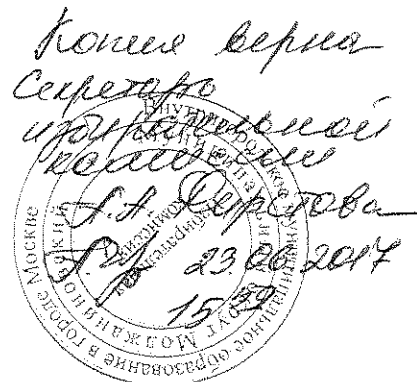 Копия верна
Секретарь
избирательной
комиссии
23.06.2017
Внутригородское муниципальное образование в городе Москве
муниципальный округ Молжаниновский
Избирательная комиссия